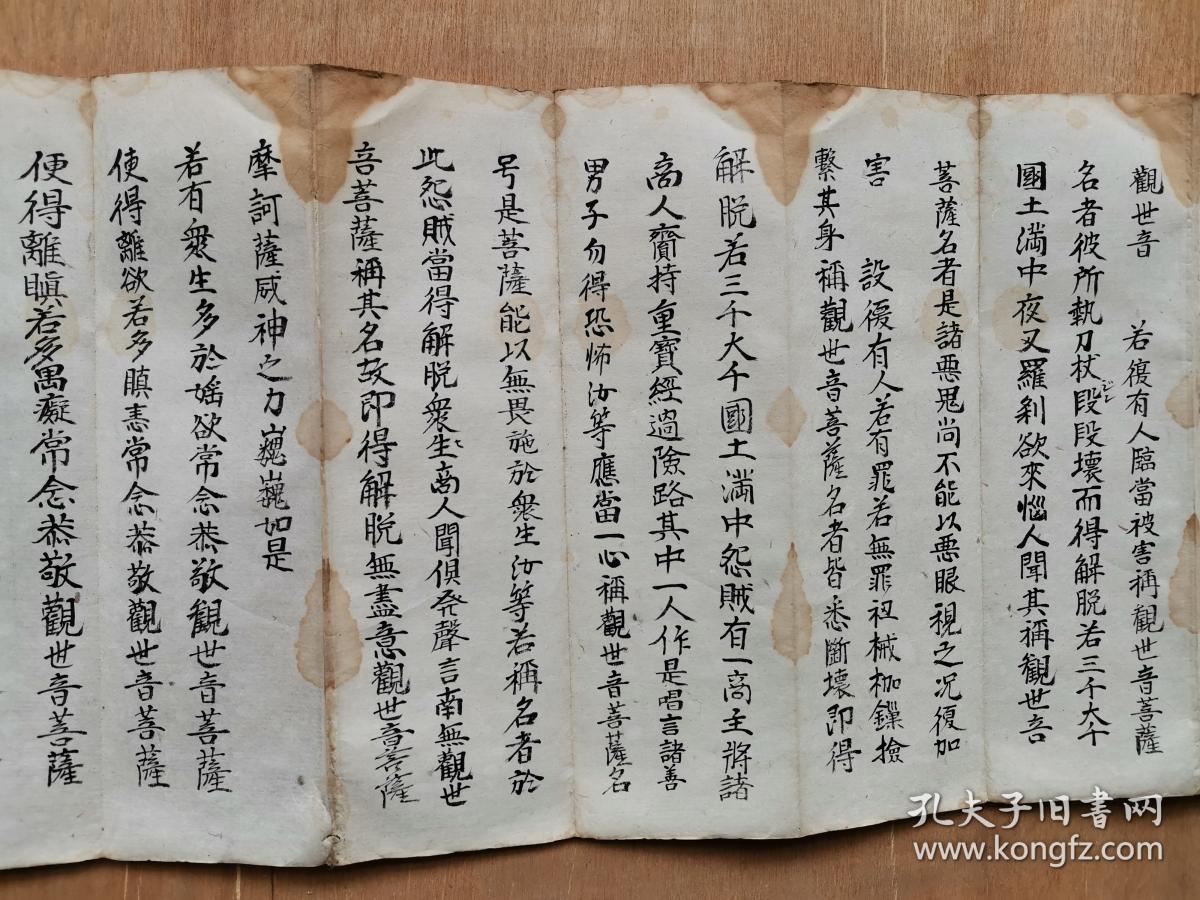 觀世音　若復有人臨當被害稱觀世音菩薩
名者彼所執刀杖段段壞而得解脱若三千大千
國土満中夜叉羅刹欲來惱人聞其稱觀世音
菩薩名者是諸悪鬼尚不能以悪眼視之况復加
害　設復有人若有罪若無罪杻械枷鏁撿
繋其身稱觀世音菩薩名者皆悉斷壞即得
解脱若三千大千國土満中怨賊有一商主将諸
商人齎持重寳經過險路其中一人作是唱言諸善
男子勿得恐怖汝等應當一心稱觀世音菩薩名
号是菩薩能以無畏施於衆生汝等若稱名者於
此怨賊當得解脱衆生商人聞俱発聲言南無觀世
音菩薩稱其名故即得解脱無盡意觀世音菩薩
摩訶薩威神之力巍巍如是
若有衆生多於婬欲常念恭敬観世音菩薩
便得離欲若多瞋恚常念恭敬觀世音菩薩
便得離瞋若多愚癡常念恭敬觀世音菩薩
孔夫子旧书网
www.kongfz.com